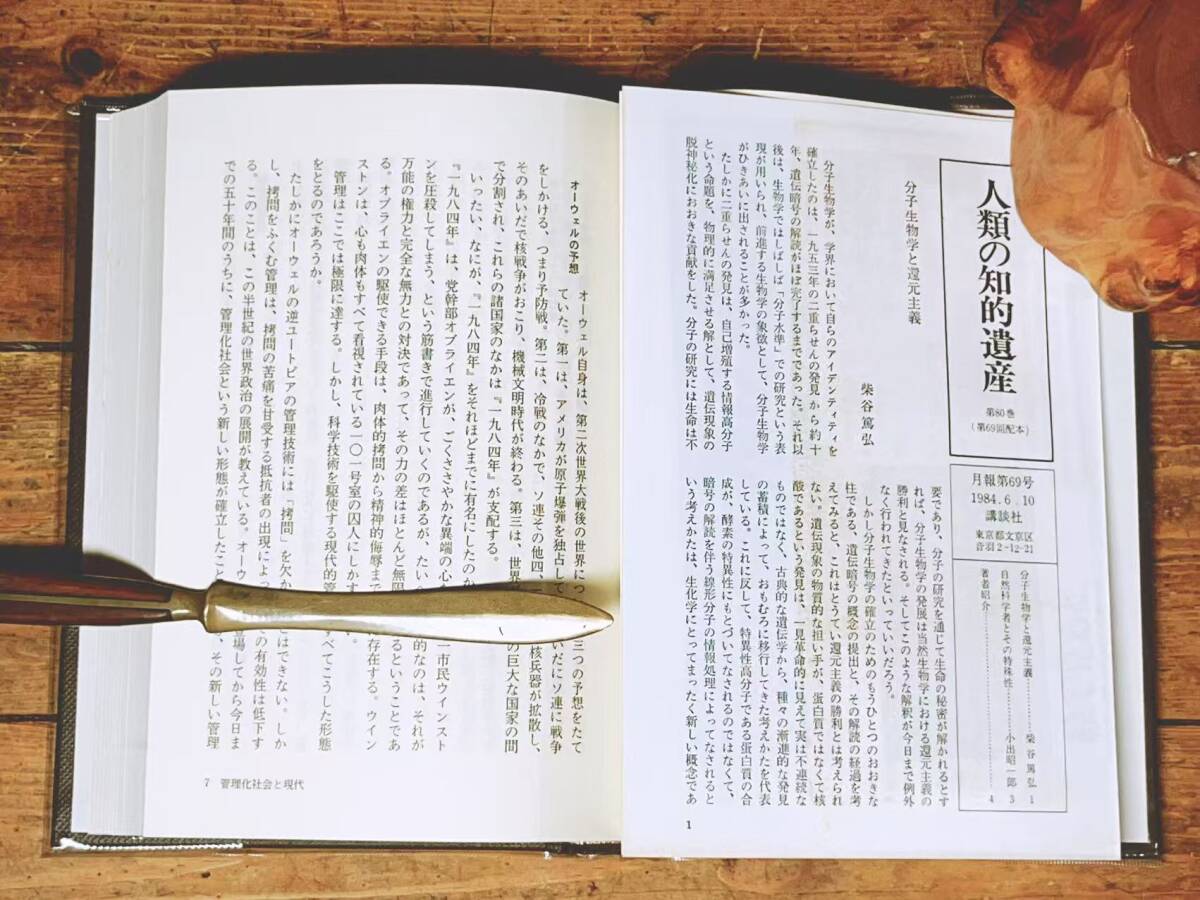 人類の知的遺産
第80巻
（第69回配本）
月報第69号
1984.6.10
講談社
東京都文京区
音羽2-12-21
分子生物学と還元主義………柴谷篤弘 1
自然科学者とその特殊性………小出昭一郎 3
著者紹介………4
分子生物学と還元主義
柴谷篤弘
分子生物学が、学界において自らのアイデンティティを
確立したのは、一九五三年の二重らせんの発見から約十
年、遺伝暗号の解読がほぼ完了するまでであった。それ以
後は、生物学ではしばしば「分子水準」での研究という表
現が用いられ、前進する生物学の象徴として、分子生物学
がひきあいに出されることが多かった。
たしかに二重らせんの発見は、自己増殖する情報高分子
という命題を、物理的に満足させる解として、遺伝現象の
脱神秘化におおきな貢献をした。分子の研究には生命は不
要であり、分子の研究を通じて生命の秘密が解かれるとす
れば、分子生物学の発展は当然生物学における還元主義の
勝利と見なされる。そしてこのような解釈が今日まで例外
なく行われてきたといっていいだろう。
しかし分子生物学の確立のためのもうひとつのおおきな
柱である、遺伝暗号の概念の提出と、その解読の経過を考
えてみると、これはとうてい還元主義の勝利とは考えられ
ない。遺伝現象の物質的な担い手が、蛋白質ではなくて核
酸であるという発見は、一見革命的に見えて実は不連続な
ものではなく、古典的な遺伝学から、種々の漸進的な発見
の蓄積によって、おもむろに移行してきた考えかたを代表
している。これに反して、特異性高分子である蛋白質の合
成が、酵素の特異性にもとづいてなされるのではなくて、
暗号の解読を伴う線形分子の情報処理によってなされると
いう考えかたは、生化学にとってまったく新しい概念であ
1
オーウェルの予想
オーウェル自身は、第二次世界大戦後の世界につ 三つの予想をたて
ていた。第一は、アメリカが原子爆弾を独占して いだにソ連に戦争
をしかける、つまり予防戦。第二は、冷戦のなかで、ソ連その他四、 核兵器が拡散し、
そのあいだで核戦争がおこり、機械文明時代が終わる。第三は、世界 の巨大な国家の間
で分割され、これらの諸国家のなかは『一九八四年』が支配する。
いったい、なにが、『一九八四年』をそれほどまでに有名にしたのか
『一九八四年』は、党幹部オブライエンが、ごくささやかな異端の心 一市民ウインスト
ンを圧殺してしまう、という筋書きで進行していくのであるが、たい 的なのは、それが
万能の権力と完全な無力との対決であって、その力の差はほとんど無限 るということであ
る。オブライエンの駆使できる手段は、肉体的拷問から精神的侮辱まで 存在する。ウイン
ストンは、心も肉体もすべて看視されている一〇一号室の囚人にしかす 。
管理はここでは極限に達する。しかし、科学技術を駆使する現代的管 すべてこうした形態
をとるのであろうか。
たしかにオーウェルの逆ユートピアの管理技術には「拷問」を欠か とはできない。しか
し、拷問をふくむ管理は、拷問の苦痛を甘受する抵抗者の出現によっ の有効性は低下す
る。このことは、この半世紀の世界政治の展開が教えている。オーウ 登場してから今日ま
での五十年間のうちに、管理化社会という新しい形態が確立したこと 、その新しい管理
7 管理化社会と現代